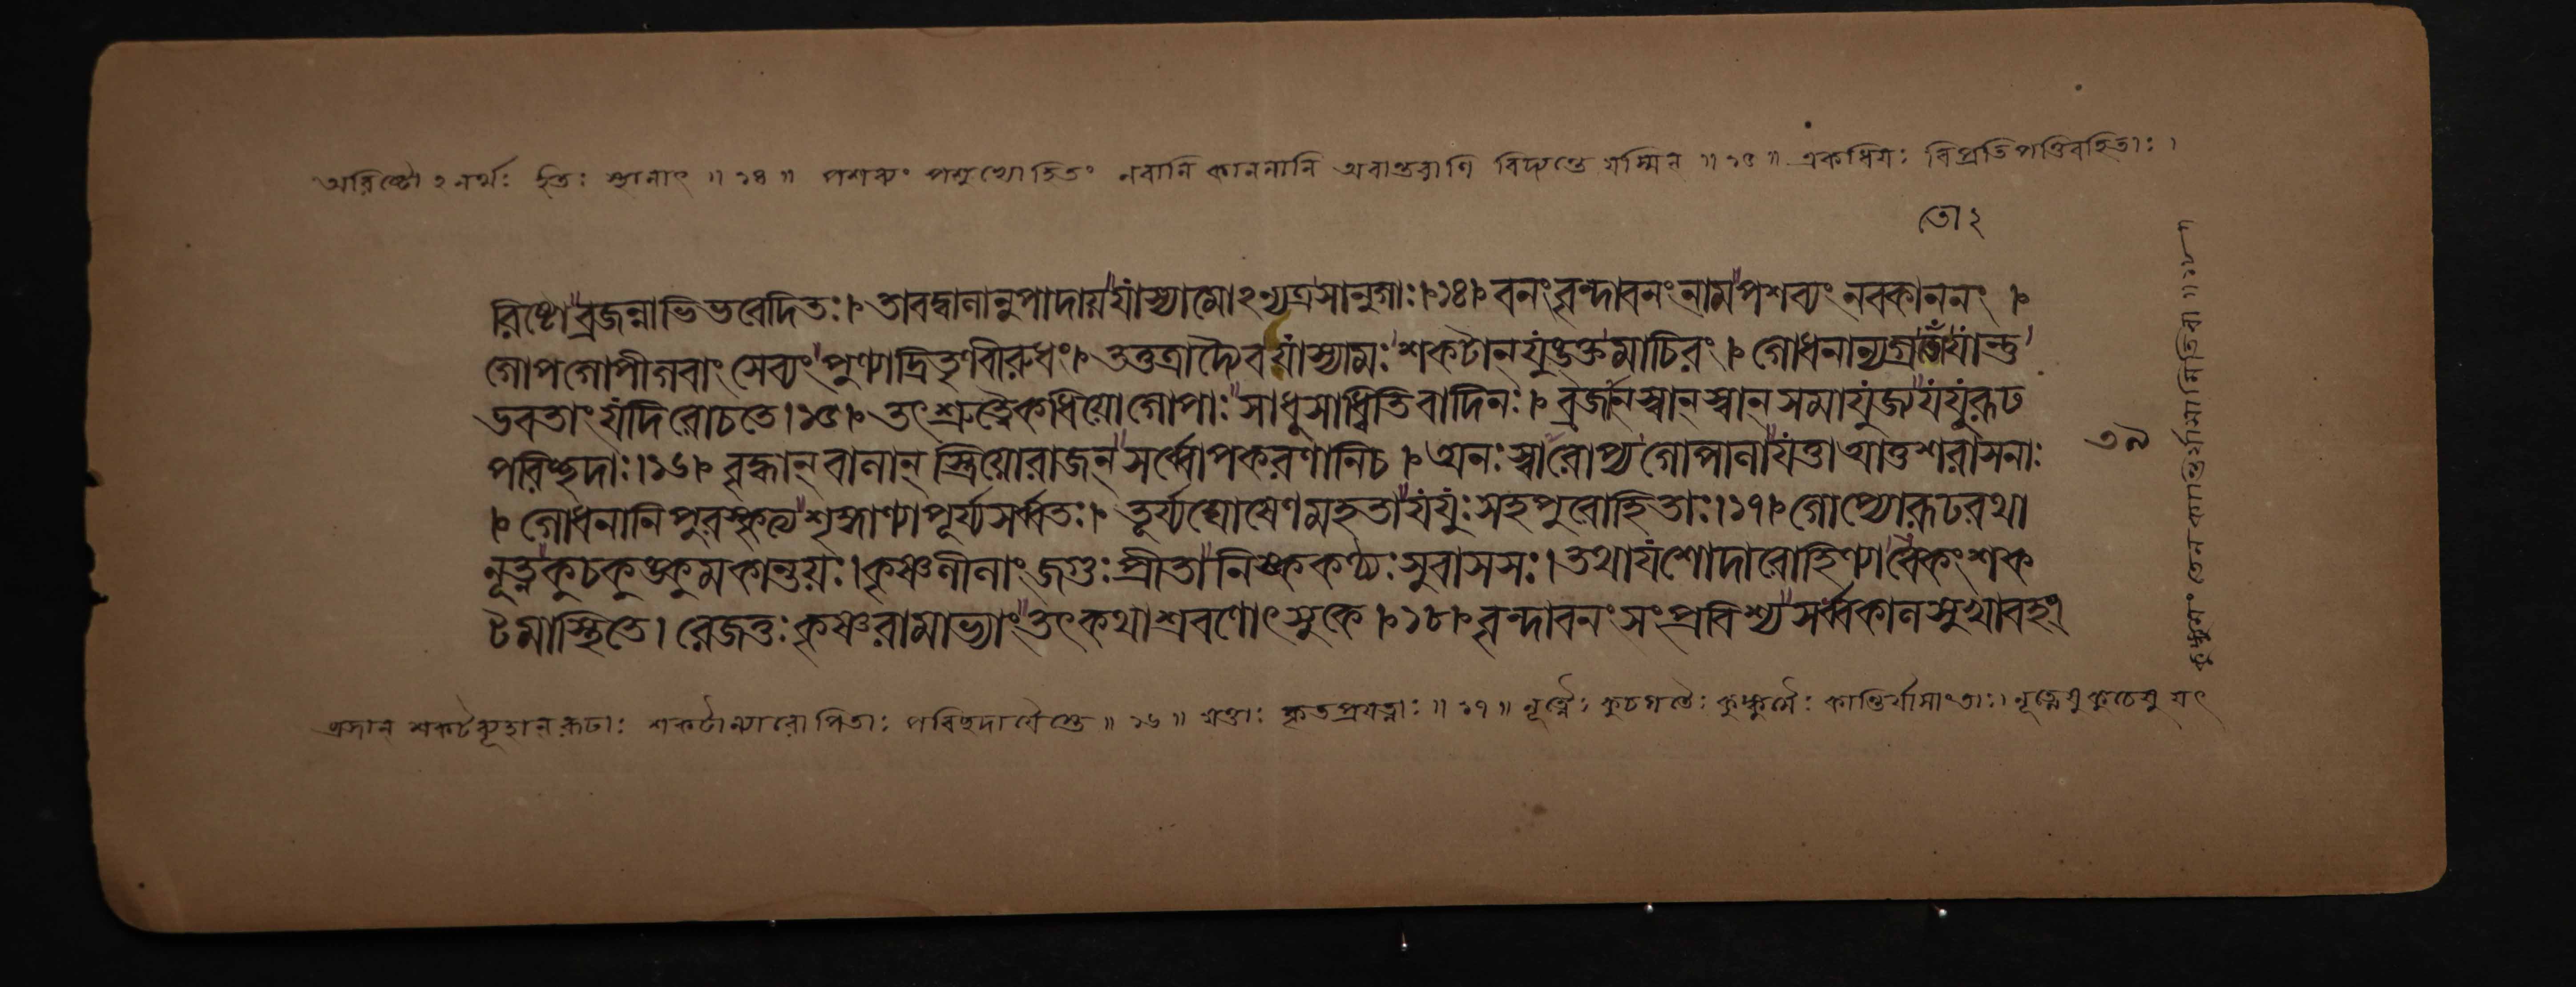 অরিষ্টো ২নর্থঃ ইতঃ স্থানাৎ ॥ ১৪ ॥ পশব্যং পশুভ্যোহিতং নবানি কাননানি অবান্তরাণি বিদ্যন্তে যস্মিন ॥ ১৫ ॥ একধিয়ঃ বিপ্রতিপত্তিরহিতাঃ ।
তো ২
রিষ্টোব্রজন্নাভিভবেদিতঃ। তাবদ্বালানুপাদায়যাস্যামো২ন্যত্রসানুগাঃ।১৪। বনংবৃন্দাবনংনামপশব্যংনবকাননং ।
গোপগোপীগবাংসেব্যংপুণ্যাদ্রিতৃণবীরুধং। তত্তত্রাদ্যৈবযাস্যামঃশকটানযুঙ্ক্তমাচিরং। গোধনান্যগ্রতোযান্তু
ভবতাংযদিরোচতে।১৫। তৎশ্রুত্বৈকধিয়োগোপাঃসাধুসাধ্বিতিবাদিনঃ। ব্রজানস্বানস্বানসমাযুজ্যযযুরূঢ
পরিচ্ছদাঃ।১৬। বৃদ্ধানবালানস্ত্রিয়োরাজনসর্ব্বোপকরণানিচ। অনঃস্বারোপ্যগোপালাযত্তাআত্তশরাসনাঃ
। গোধনানিপুরস্কৃত্যশৃঙ্গাণ্যাপূর্য্যসর্ব্বতঃ। তূর্য্যঘোষেণমহতাযযুঃসহপুরোহিতাঃ।১৭। গোপ্যোরূঢরথা
নূত্নকুচকুঙ্কুমকান্তয়ঃ।কৃষ্ণলীলাংজগুঃপ্রীতানিষ্ককণ্ঠ্যঃসুবাসসঃ। তথাযশোদারোহিণ্যাবেকংশক
টমাস্থিতে। রেজতুঃকৃষ্ণরামাভ্যাংতৎকথাশ্রবণোৎসুকে।১৮। বৃন্দাবনংসংপ্রবিশ্যসর্ব্বকালসুখাবহং
ব্রজান শকটব্যূহান রূঢাঃ শকটান্যারোপিতাঃ পরিছদাযৈস্তে ॥ ১৬ ॥ যত্তাঃ কৃতপ্রযত্নাঃ ॥ ১৭ ॥ নূত্নৈঃ কুচগতৈঃ কুঙ্কুমৈঃ কান্তির্যাসাংতাঃ। নূত্নেষু কুচেষু যৎ
কুঙ্কুমং তেন কান্তির্যাসামিতিবা ॥ ১৮ ॥
৩৯